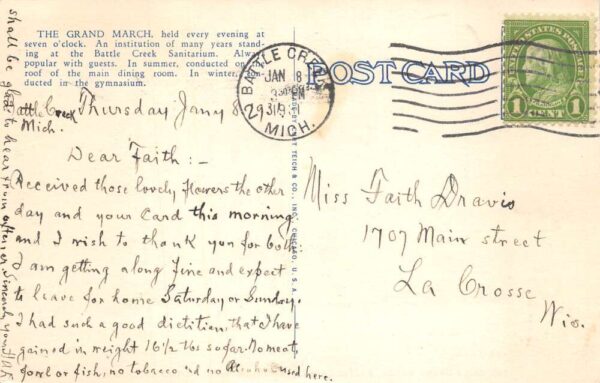 THE GRAND MARCH, held every evening at
seven o'clock. An institution of many years stand-
ing at the Battle Creek Sanitarium. Always
popular with guests. In summer, conducted on the
roof of the main dining room. In winter, con-
ducted in the gymnasium.
POST CARD
BATTLE CREEK
JAN 8
PM
1931
MICH.
UNITED STATES POSTAGE
1 CENT 1
Battle Creek Thursday Jany 8, 2931
Mich.
Dear Faith:-
Received those lovely flowers the other
day and your Card this morning
and I wish to thank you for both.
I am getting along fine and expect
to leave for home Saturday or Sunday.
I had such a good dietitian, that I have
gained in weight 16 1/2 lbs so far. No meat,
fowl or fish, no tobacco and no Alcohol used here.
shall be glad to hear from Sincerely yours
Miss Faith Dravis
1707 Main street
La Crosse
Wis.
CURT TEICH & CO., INC., CHICAGO, U.S.A.